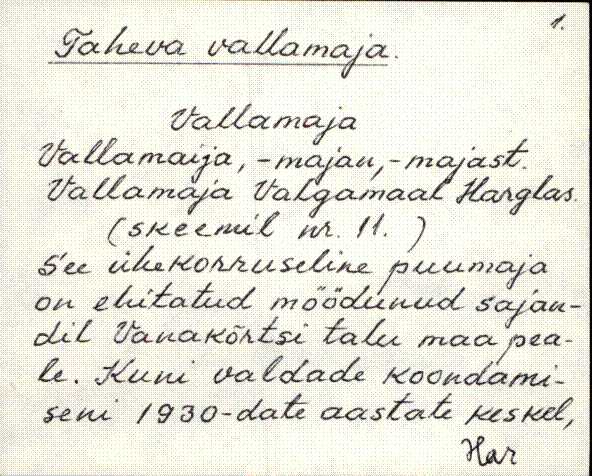 1.
Taheva vallamaja.
Vallamaja
Vallamaija, -majan, -majast.
Vallamaja Valgamaal Harglas.
(skeemil nr. 11. )
See ühekorruseline puumaja
on ehitatud möödunud sajan-
dil Vanakõrtsi talu maa pea-
le. Kuni valdade koondami-
seni 1930-date aastate keskel,
Har